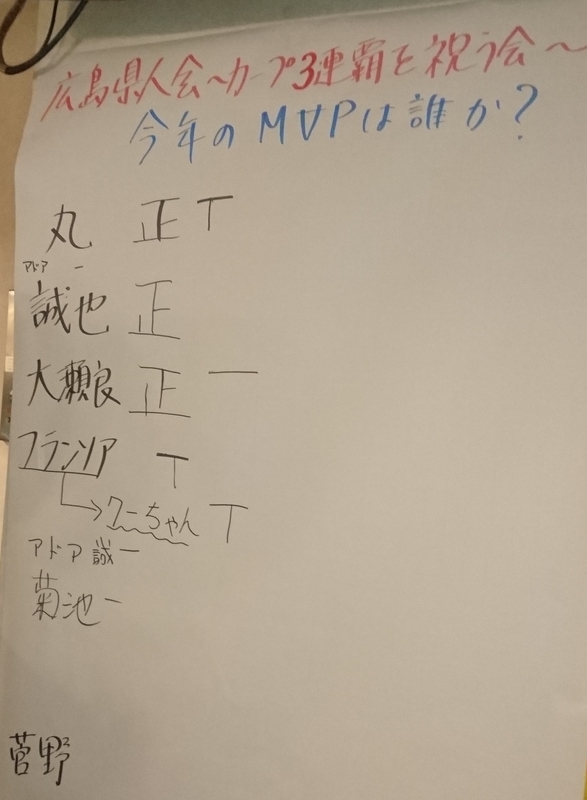 広島県人会〜カープ3連覇を祝う会〜
今年のMVPは誰か?
丸 正丅
アドア 一
誠也 正
大瀬良 正一
フランソア 丅
→クーちゃん 丅
アドア 誠 一
菊池 一
菅野